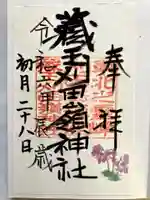 奉拝
蔵王刈田嶺神社
令和六年甲辰歳
初月二十八日